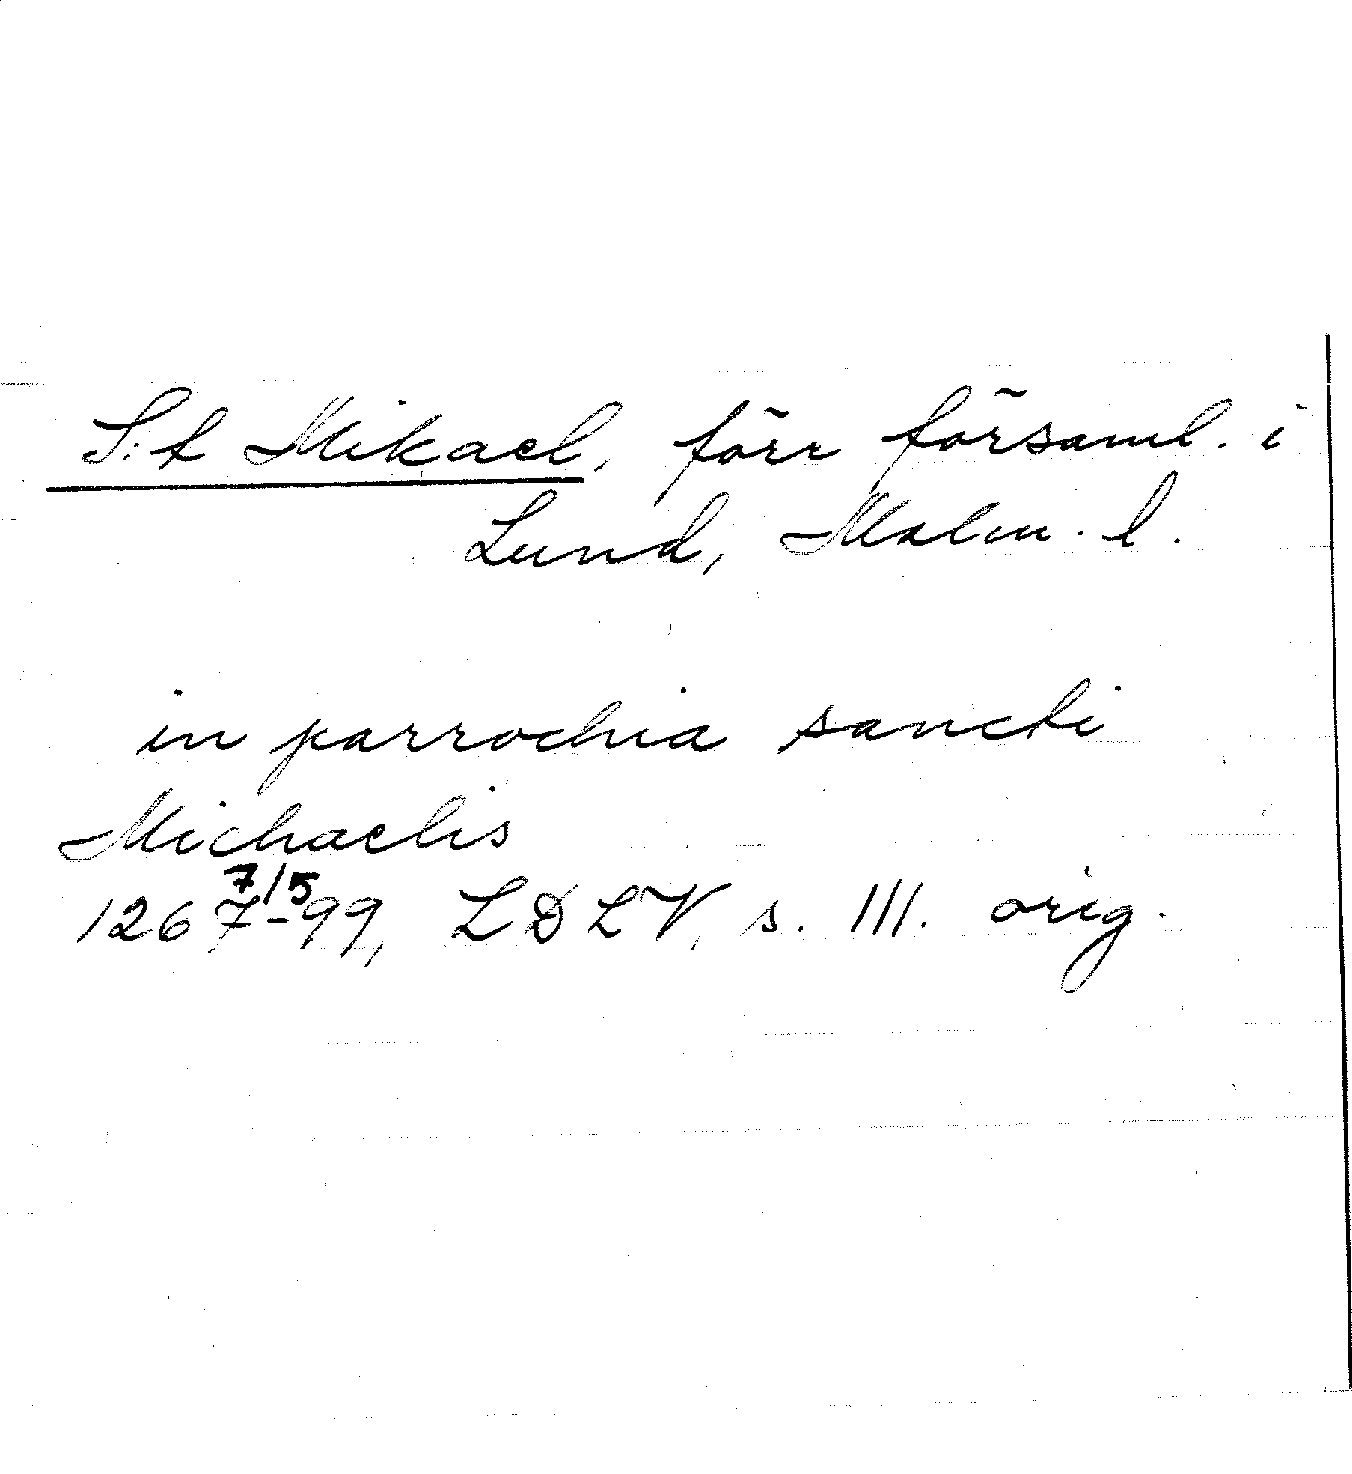 S:t Mikael, förr församl. i
Lund, Malm. l.
in parrochia sancti
Michaelis
1267 7/5 -99, LDLV, s. 111. orig.